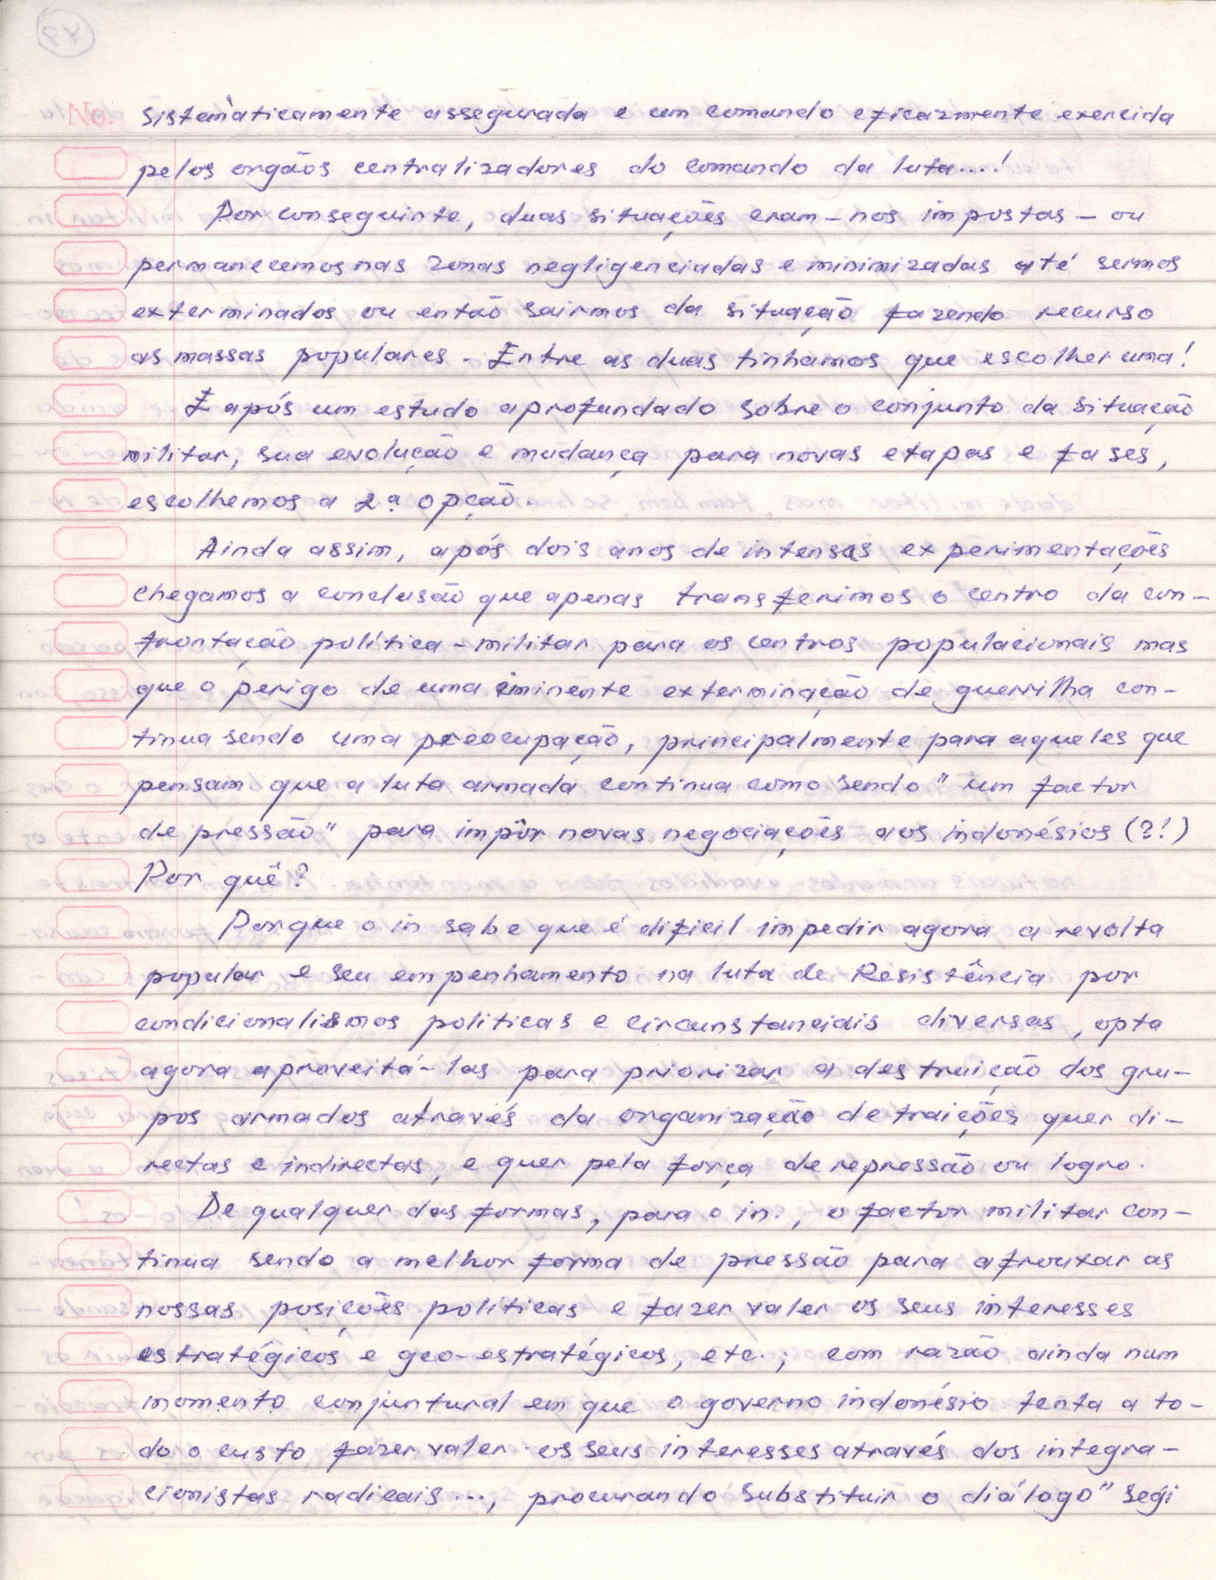 sistemàticamente assegurada e um comando eficazmente exercida
pelos orgãos centralizadores do comando da luta....!
Por conseguinte, duas situações eram-nos impostas - ou
permanecemos nas zonas negligenciadas e minimizadas até sermos
exterminados ou então sairmos da situação fazendo recurso
as massas populares. Entre as duas tinhamos que escolher uma!
E após um estudo aprofundado sobre o conjunto da situação
militar, sua evolução e mudança para novas etapas e fases,
escolhemos a 2.ª opção.
Ainda assim, após dois anos de intensas experimentações
chegamos a conclusão que apenas transferimos o centro da con-
frontação política-militar para os centros populacionais mas
que o perigo de uma iminente exterminação de guerrilha con-
tinua sendo uma preocupação, principalmente para aqueles que
pensam que a luta armada continua como sendo "um factor
de pressão" para impôr novas negociações aos indonésios (?!)
Por quê?
Porque o in sabe que é dificil impedir agora a revolta
popular e seu empenhamento na luta de Resistência por
condicionalismos politicas e circunstanciais diversas, opta
agora aproveitá-las para priorizar a destruição dos gru-
pos armados através da organização de traições quer di-
rectas e indirectas, e quer pela força de repressão ou logro.
De qualquer das formas, para o in., o factor militar con-
tinua sendo a melhor forma de pressão para afrouxar as
nossas posições políticas e fazer valer os seus interesses
estratégicos e geo-estratégicos, etc.; com razão ainda num
momento conjuntural em que o governo indonésio tenta a to-
do o custo fazer valer os seus interesses através dos integra-
cionistas radicais..., procurando substituir o diálogo" segi